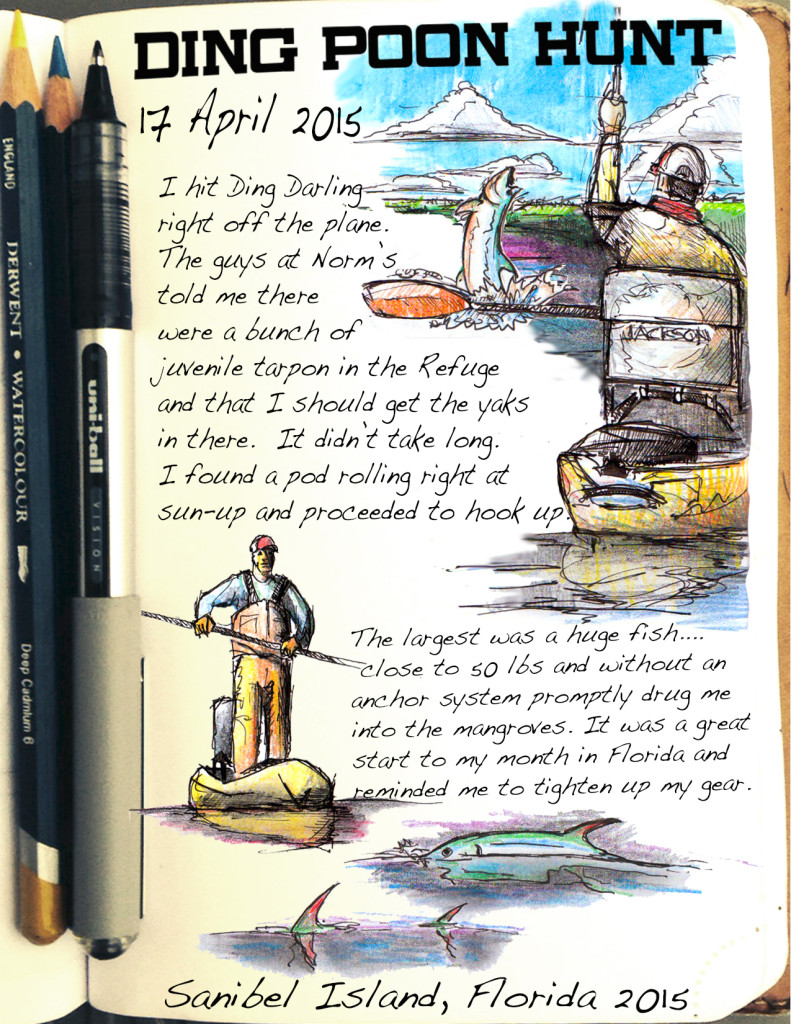 DING POON HUNT
17 April 2015
I hit Ding Darling
right off the plane.
The guys at Norm's
told me there
were a bunch of
juvenile tarpon in the Refuge
and that I should get the yaks
in there. It didn't take long.
I found a pod rolling right at
sun-up and proceeded to hook up.
JACKSON
The largest was a huge fish....
close to 50 lbs and without an
anchor system promptly drug me
into the mangroves. It was a great
start to my month in Florida and
reminded me to tighten up my gear.
Sanibel Island, Florida 2015
ENGLAND
DERWENT • WATERCOLOUR
Deep Cadmium 6
uni-ball
VISION